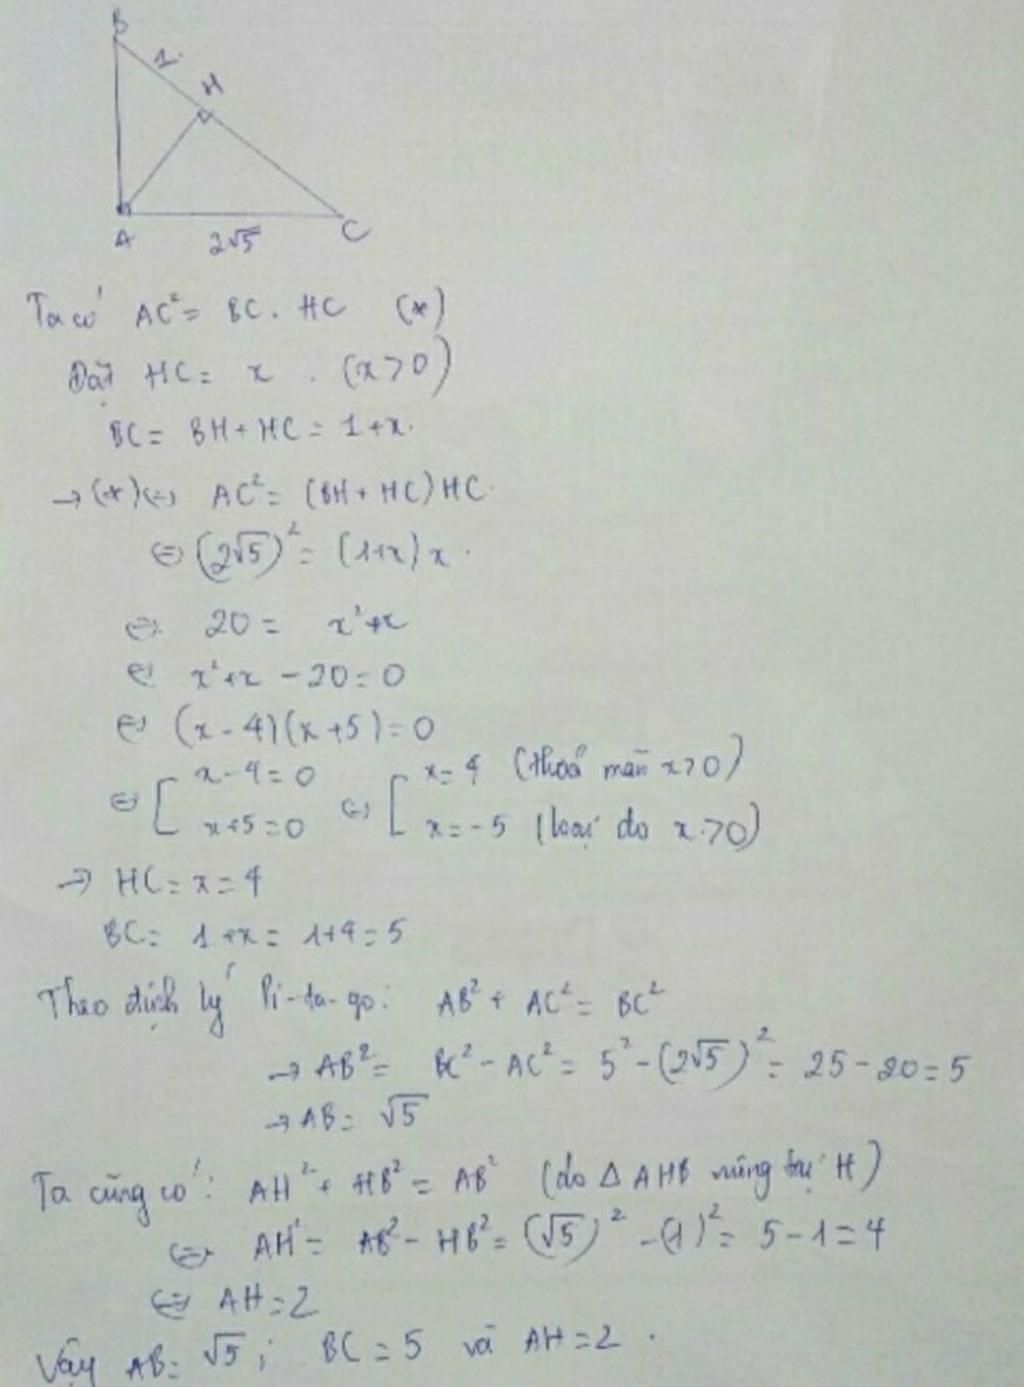 B
1
H
A
2√5
C
Ta có AC² = BC . HC (*)
Đặt HC = x . (x > 0)
BC = BH + HC = 1 + x.
→ (*) ⇔ AC² = (BH + HC) HC.
⇔ (2√5)² = (1+x) x .
⇔ 20 = x² + x
⇔ x² + x - 20 = 0
⇔ (x - 4)(x + 5) = 0
⇔ [ x - 4 = 0 ⇔ [ x = 4 (thoả mãn x > 0)
x + 5 = 0 x = -5 (loại do x > 0)
→ HC = x = 4
BC = 1 + x = 1 + 4 = 5
Theo định lý Pi-ta-go: AB² + AC² = BC²
→ AB² = BC² - AC² = 5² - (2√5)² = 25 - 20 = 5
→ AB = √5
Ta cũng có: AH² + HB² = AB² (do Δ AHB vuông tại H)
⇔ AH² = AB² - HB² = (√5)² - (1)² = 5 - 1 = 4
⇔ AH = 2
Vậy AB = √5 ; BC = 5 và AH = 2 .